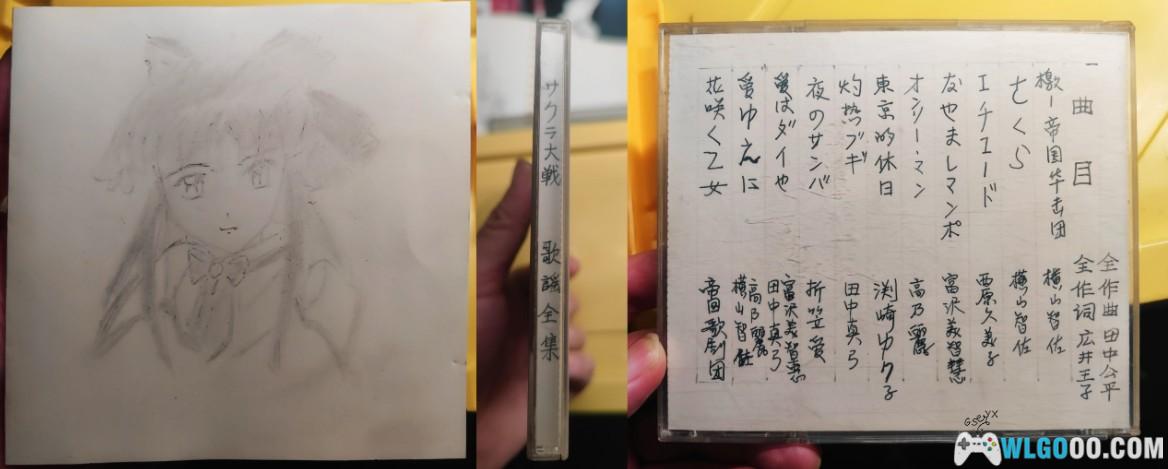 サクラ大戦 歌謡全集
曲目
全作曲 田中公平
全作词 広井王子
檄!帝国华击团 横山智佐
さくら 横山智佐
エチュード 西原久美子
なやましマンボ 富沢美智慧
オンリー・マン 高乃麗
東京的休日 渕崎ゆり子
灼热ブギ 田中真弓
夜のサンバ 折笠愛
愛はダイヤ 富沢美智恵 田中真弓
愛ゆえに 高乃麗 横山智佐
花咲く乙女 帝国歌劇団
WLGOOO.COM